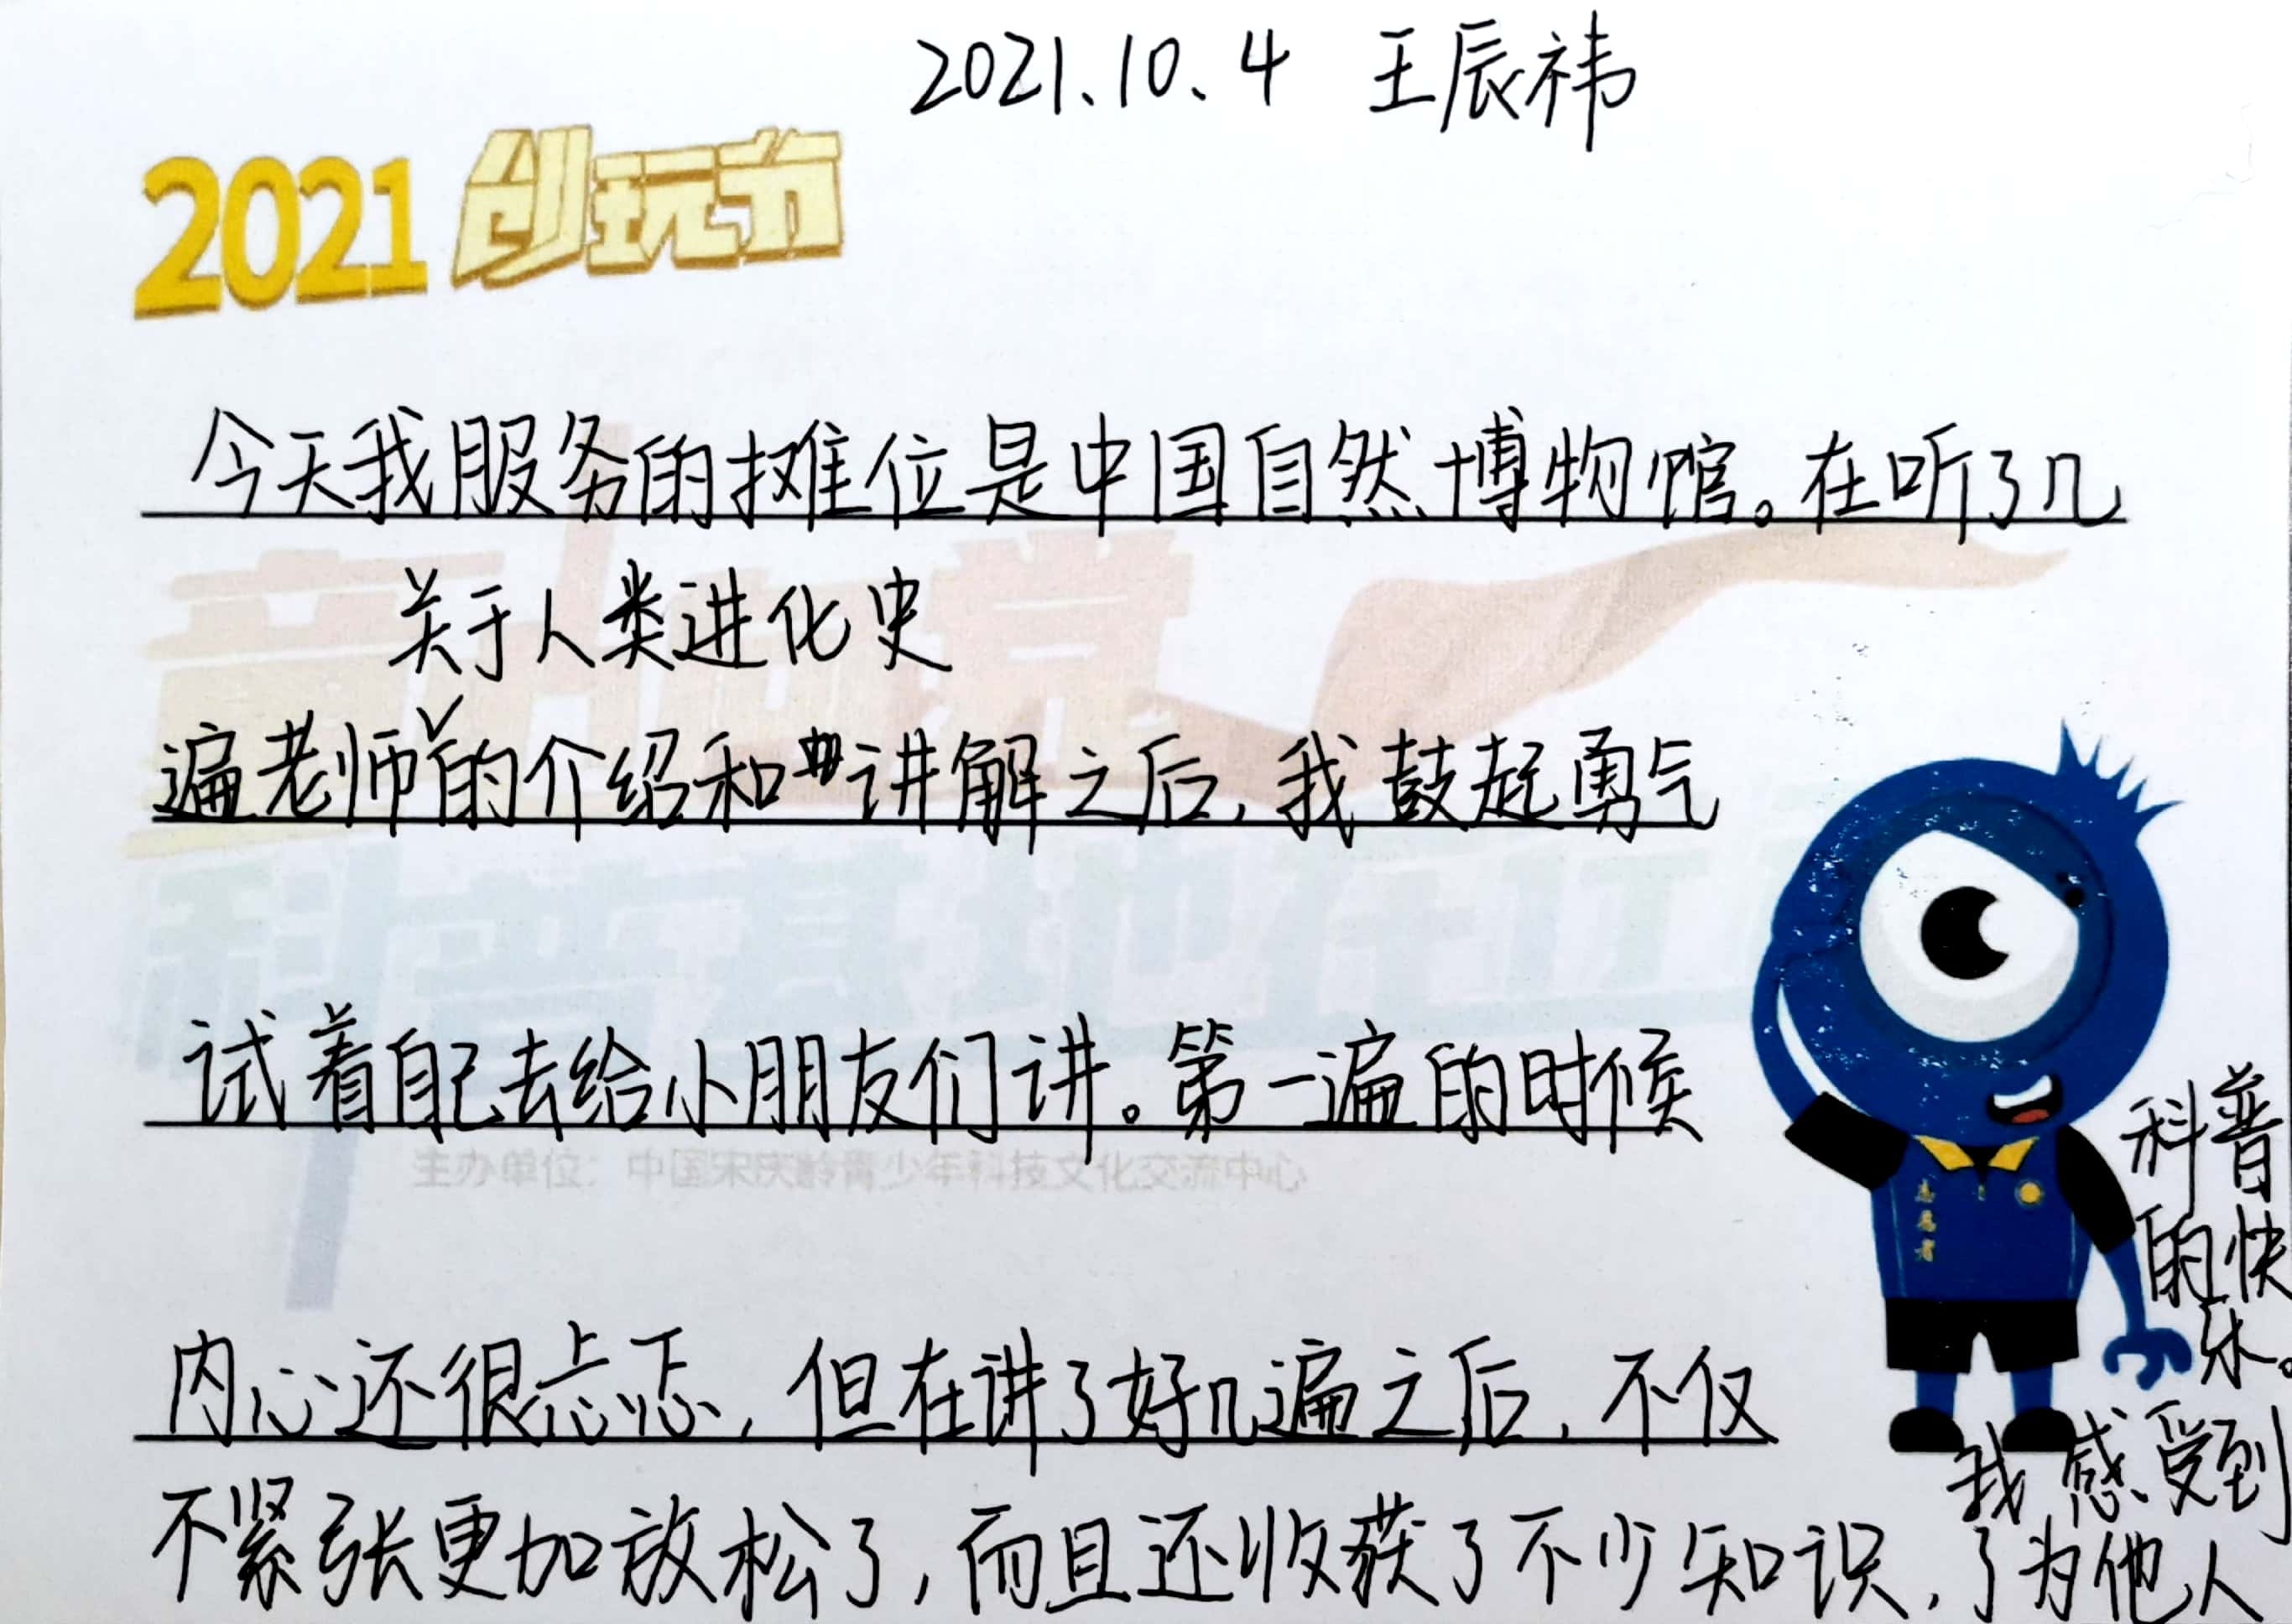 2021.10.4 王辰祎
2021 创玩节
今天我服务的摊位是中国自然博物馆。在听了几
关于人类进化史
遍老师的介绍和讲解之后,我鼓起勇气
试着自己去给小朋友们讲。第一遍的时候
主办单位:中国宋庆龄青少年科技文化交流中心
内心还很忐忑,但在讲了好几遍之后,不仅
不紧张更加放松了,而且还收获了不少知识,
我感受到
了为他人
科普
的快
乐。
童心向党
科普基地在行
志愿者